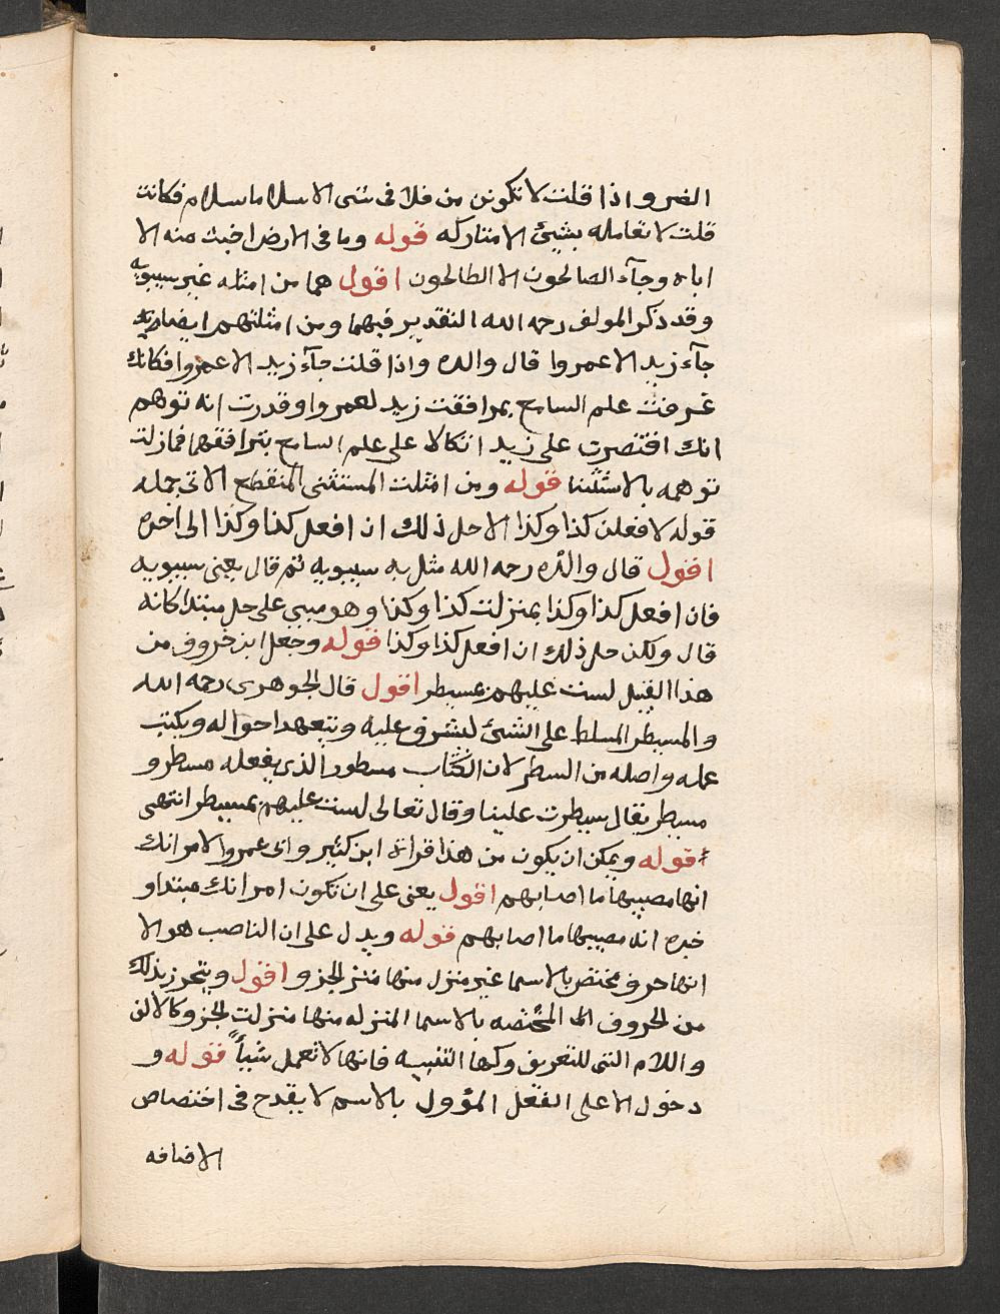 الضر واذا قلت لا تكونن من فلان فى شى الا سلاما سلام فكانك
قلت لا تعامله بشئ الا متاركه قوله وما فى الارض اخبث منه الا
اياه وجآء الصالحون الا الطالحون اقول هما من امثله غير سيبويه
وقد ذكر المولف رحمه الله التقدير فيهما ومن امثلتهم ايضا
جآء زيد الا عمروا قال والده واذا قلت جآء زيد الا عمروا فكانك
عرفت علم السامع بمرافقت زيد لعمروا وقدرت انه توهم
انك اقتصرت على زيد اتكالا على علم السامع بترافقهما فازلت
توهمه بالاستثنا قوله ومن امثلت المستثنى المنقطع الاتى جمله
قوله لافعلن كذا وكذا الا حل ذلك ان افعل كذا وكذا الى اخره
اقول قال والده رحمه الله مثل به سيبويه ثم قال يعنى سيبويه
فان افعل كذا وكذا بمنزلت كذا وكذا وهو مبنى على حل مبتدا كانه
قال ولكن حل ذلك ان افعل كذا وكذا قوله وجعل ابن خروف من
هذا القبيل لست عليهم بمسيطر اقول قال الجوهرى رحمه الله
والمسيطر المسلط على الشئ ليشرف عليه ويتعهد احواله ويكتب
عمله واصله من السطر لان الكتاب مسطور الذى يفعله مسطر و
مسيطر يقال سيطرت علينا وقال تعالى لست عليهم بمسيطر انتهى
قوله ويمكن ان يكون من هذا قراة ابن كثير وابى عمروا الا مراتك
انها مصيبها ما اصابهم اقول يعنى على ان تكون امراتك مبتدا و
خبره انه مصيبها ما اصابهم قوله ويدل على ان الناصب هو الا
انها حرف مختص بالاسما غير منزل منها منزلت الجزو اقول ويتحرز بذلك
من الحروف المختصه بالاسما المنزله منها منزلت الجزو كالالف
واللام التى للتعريف وكها التنبيه فانها لا تعمل شيأ قوله و
دخول الا على الفعل المؤول بالاسم لا يقدح فى اختصاص
الاضافه